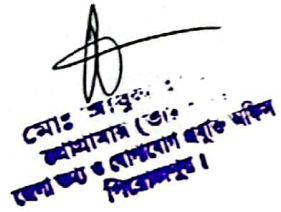 মোঃ
প্রোগ্রামার (ভাঃ
জেলা তথ্য ও যোগাযোগ প্রযুক্তি অফিস
পিরোজপুর।